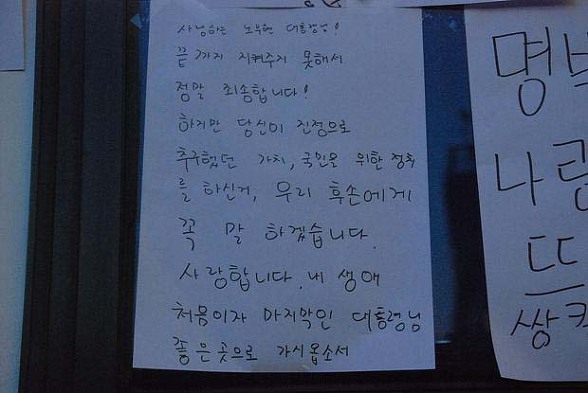 사랑하는 노무현 대통령님!
끝까지 지켜주지 못해서
정말 죄송합니다!
하지만 당신이 진정으로
추구했던 가치, 국민을 위한 정추
를 하신거, 우리 후손에게
꼭 말 하겠습니다.
사랑합니다. 내 생애
처음이자 마지막인 대통령님
좋은 곳으로 가시옵소서
명박
나랑
뜨
쌍